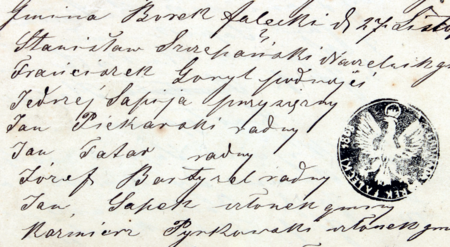 Gmina Borek fałecki d 27 Listo
Stanisław Szczepański Naczelnik g
Franciszek Goryl podwójci
Jędrzej Sapija przysężny
Jan Piekarski radny
Jan Tatar radny
Józef Bartyzel radny
Jan Sapek członek gminy
Kazmierz Pyrkowski członek gm